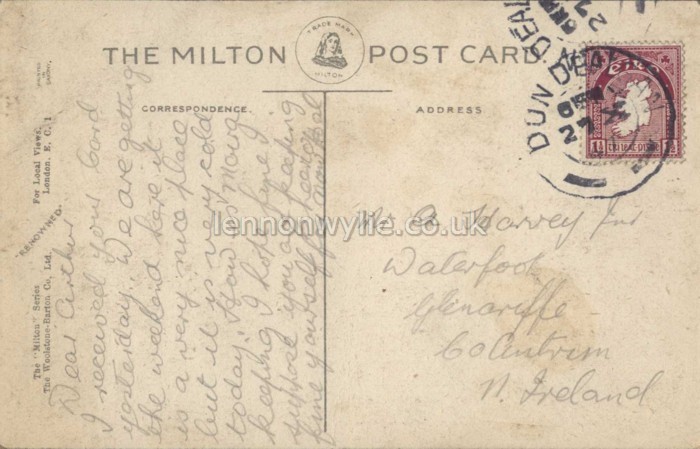 THE MILTON POST CARD
TRADE MARK
MILTON
CORRESPONDENCE.
ADDRESS
PRINTED IN
The "Milton" Series
The Woolstone-Barton Co., Ltd.
"RENOWNED"
For Local Views,
London, E.C. 1
Dear Arthur
I received your Card
yesterday. We are getting
the weekend here it
is a very nice place
but it is very cold
today. How is
keeping I hope fine I
suppose you are keeping
fine yourself
Mr A Harvey Jnr
Waterfoot
Glenariffe
Co Antrim
N. Ireland
DUN DEALGAN
DEAL
27
éire
lennonwylie.co.uk